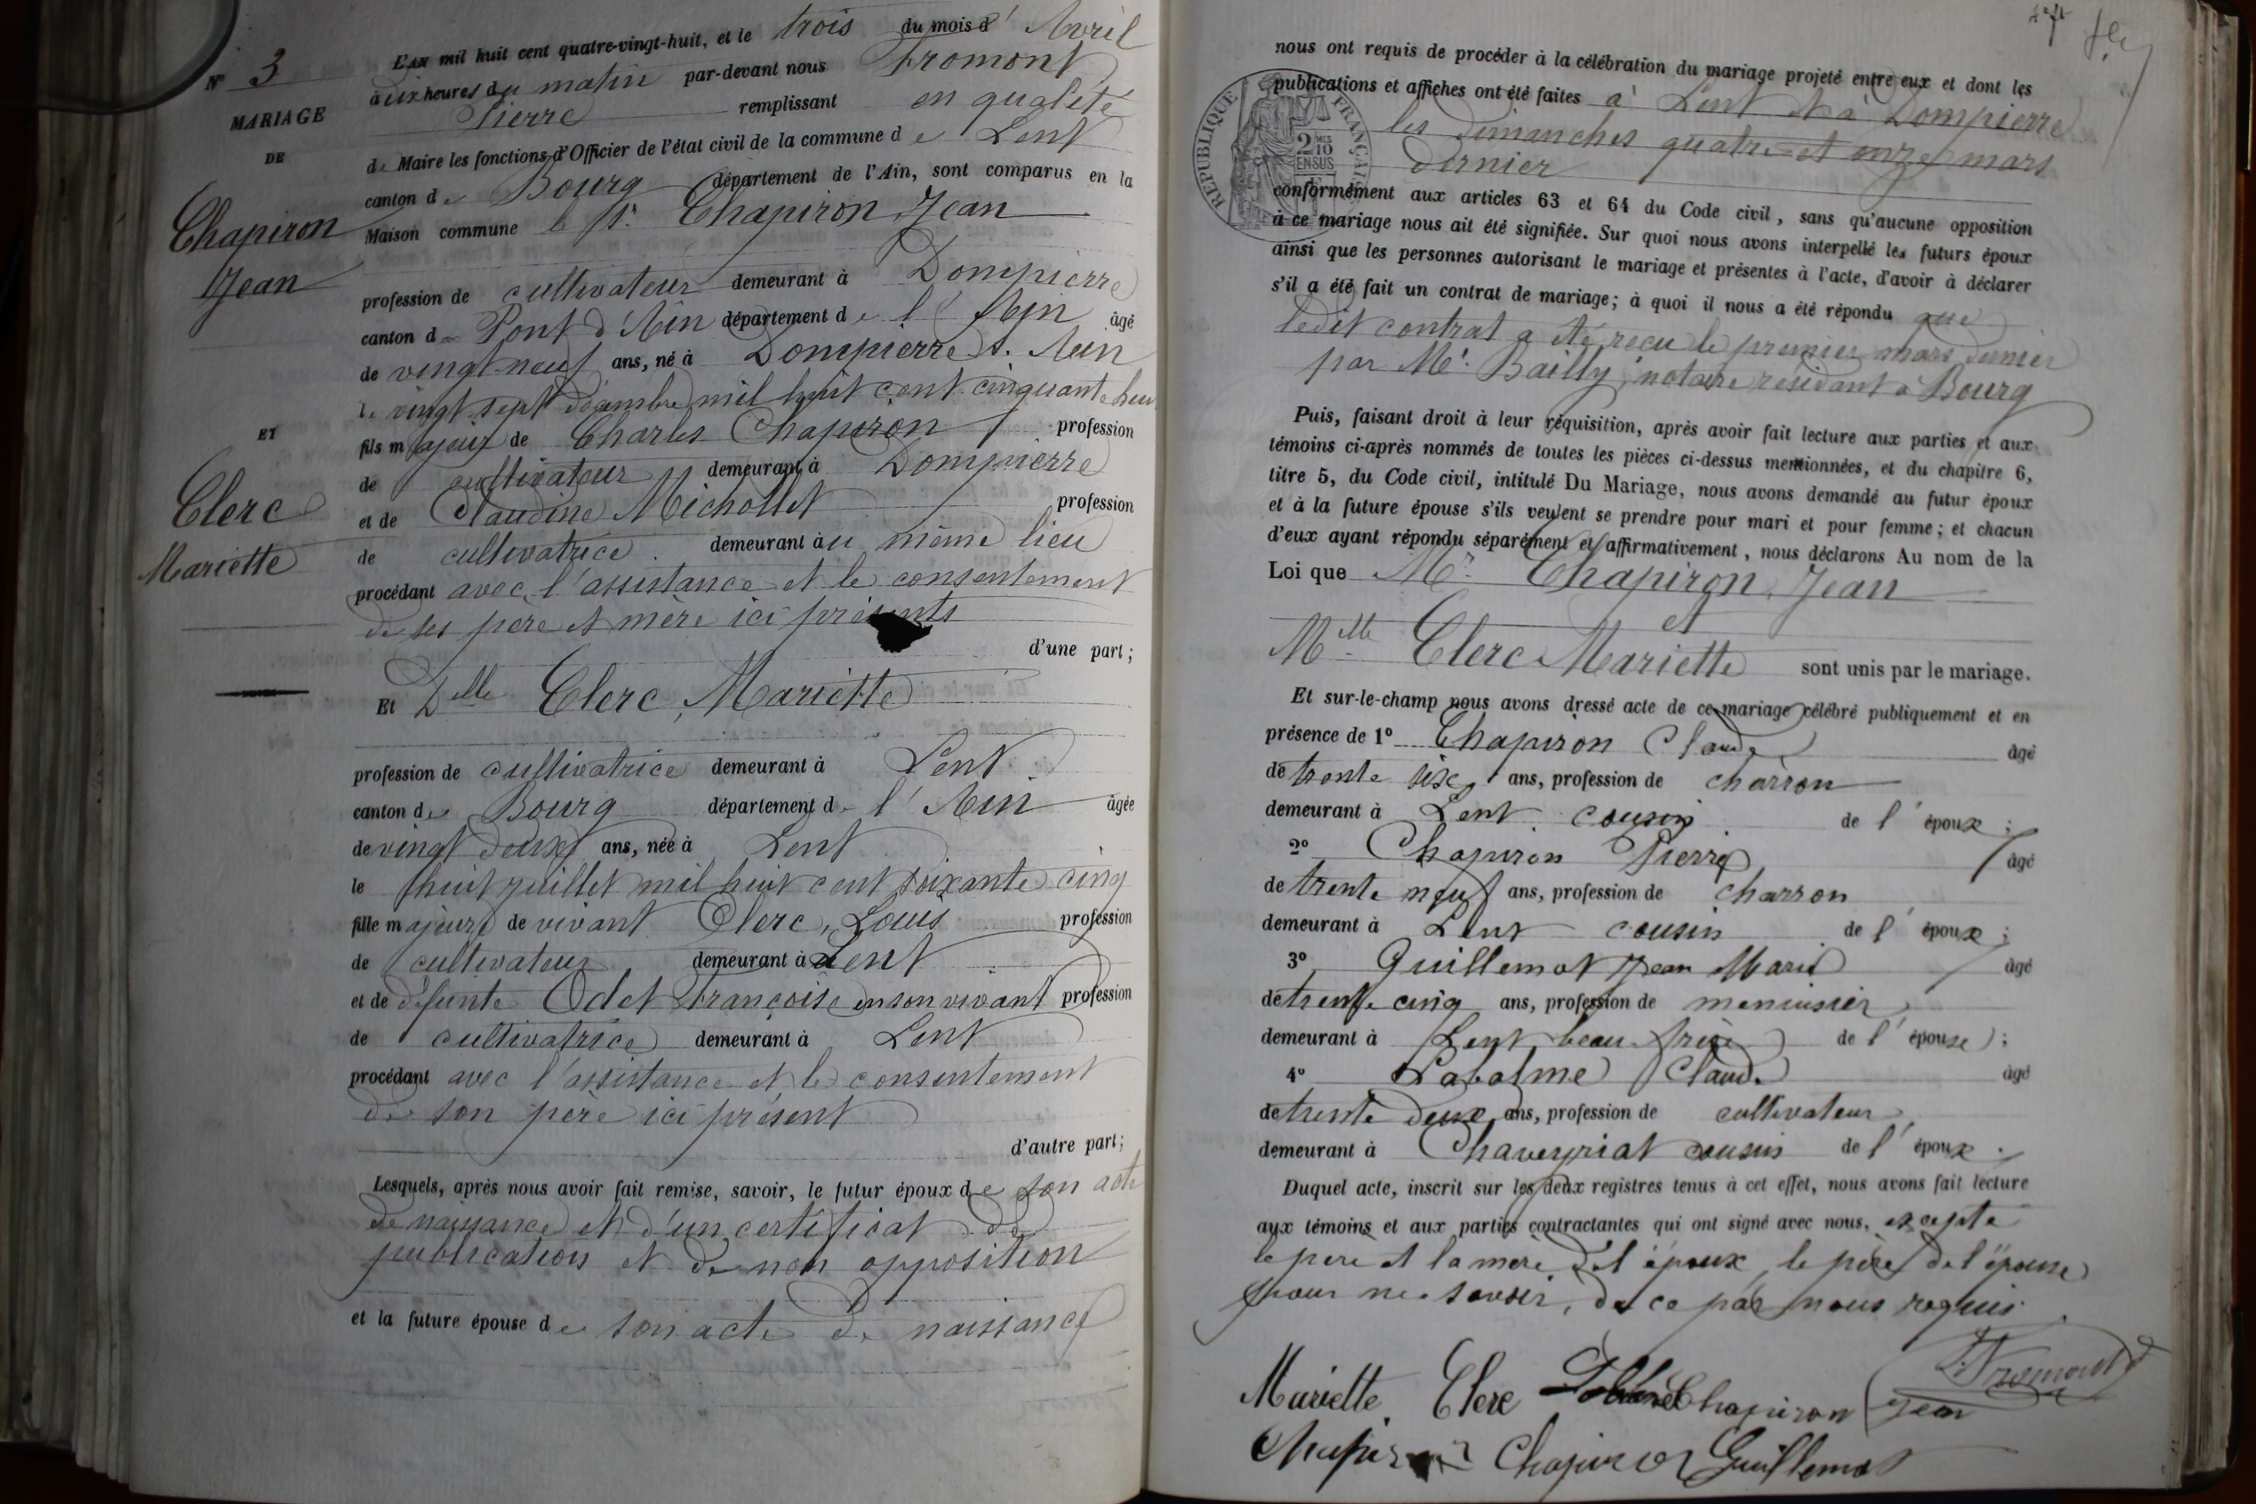 N° 3
MARIAGE
DE
Chapiron
Jean
ET
Clerc
Mariette
L'AN mil huit cent quatre-vingt-huit, et le trois du mois d'Avril
à dix heures du matin par-devant nous Fromont
Pierre remplissant en qualité
de Maire les fonctions d'Officier de l'état civil de la commune de Lent
canton de Bourg département de l'Ain, sont comparus en la
Maison commune le Sr. Chapiron Jean
profession de cultivateur demeurant à Dompierre
canton de Pont d'Ain département de l'Ain âgé
de vingt-neuf ans, né à Dompierre s. Ain
le vingt sept décembre mil huit cent cinquante huit
fils majeur de Charles Chapiron profession
de cultivateur demeurant à Dompierre
et de Claudine Michollet profession
de cultivatrice demeurant au même lieu
procédant avec l'assistance et le consentement
de ses père et mère ici présents
d'une part;
Et Delle Clerc, Mariette
profession de cultivatrice demeurant à Lent
canton de Bourg département de l'Ain âgée
de vingt deux ans, née à Lent
le huit juillet mil huit cent soixante cinq
fille majeure de vivant Clerc, Louis profession
de cultivateur demeurant à Lent
et de défunte Odet Françoise en son vivant profession
de cultivatrice demeurant à Lent
procédant avec l'assistance et le consentement
de son père ici présent
d'autre part;
Lesquels, après nous avoir fait remise, savoir, le futur époux de son acte
de naissance et d'un certificat de
publications et de non opposition
et la future épouse de son acte de naissance
nous ont requis de procéder à la célébration du mariage projeté entre eux et dont les
publications et affiches ont été faites à Lent et à Dompierre
les dimanches quatre et onze mars
dernier
RÉPUBLIQUE FRANÇAISE
2 10MES
EN SUS
conformément aux articles 63 et 64 du Code civil, sans qu'aucune opposition
à ce mariage nous ait été signifiée. Sur quoi nous avons interpellé les futurs époux
ainsi que les personnes autorisant le mariage et présentes à l'acte, d'avoir à déclarer
s'il a été fait un contrat de mariage; à quoi il nous a été répondu que
ledit contrat a été reçu le premier mars dernier
par Me. Bailly, notaire résidant à Bourg
Puis, faisant droit à leur réquisition, après avoir fait lecture aux parties et aux
témoins ci-après nommés de toutes les pièces ci-dessus mentionnées, et du chapitre 6,
titre 5, du Code civil, intitulé Du Mariage, nous avons demandé au futur époux
et à la future épouse s'ils veulent se prendre pour mari et pour femme; et chacun
d'eux ayant répondu séparément et affirmativement, nous déclarons Au nom de la
Loi que Mr. Chapiron Jean
et
Melle Clerc Mariette sont unis par le mariage.
Et sur-le-champ nous avons dressé acte de ce mariage célébré publiquement et en
présence de 1° Chapiron Claude âgé
de trente six ans, profession de charron
demeurant à Lent cousin de l'époux;
2° Chapiron Pierre âgé
de trente neuf ans, profession de charron
demeurant à Lent cousin de l'époux;
3° Guillemot Jean Marie âgé
de trente cinq ans, profession de menuisier
demeurant à Lent beau-frère de l'épouse;
4° Labalme Claude âgé
de trente deux ans, profession de cultivateur
demeurant à Chaveyriat cousin de l'époux.
Duquel acte, inscrit sur les deux registres tenus à cet effet, nous avons fait lecture
aux témoins et aux parties contractantes qui ont signé avec nous, excepté
le père et la mère de l'époux, le père de l'épouse
pour ne savoir, de ce par nous requis.
Mariette Clerc Chapiron Jean Fromont
Chapiron Guillemot